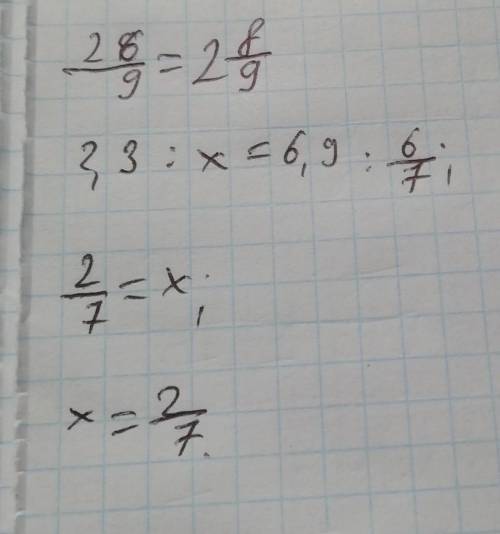 26/9 = 2 8/9
2,3 : x = 6,9 : 6/7;
2/7 = x;
x = 2/7.